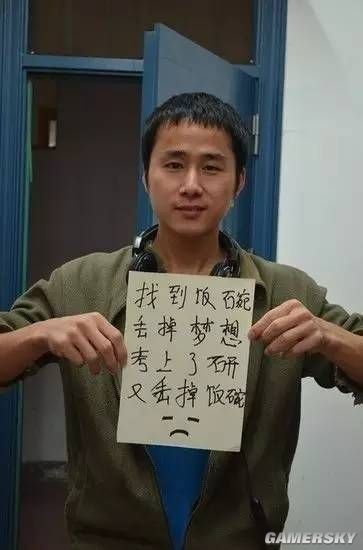 找到饭碗
丢掉梦想
考上了研
又丢掉饭碗
GAMERSKY